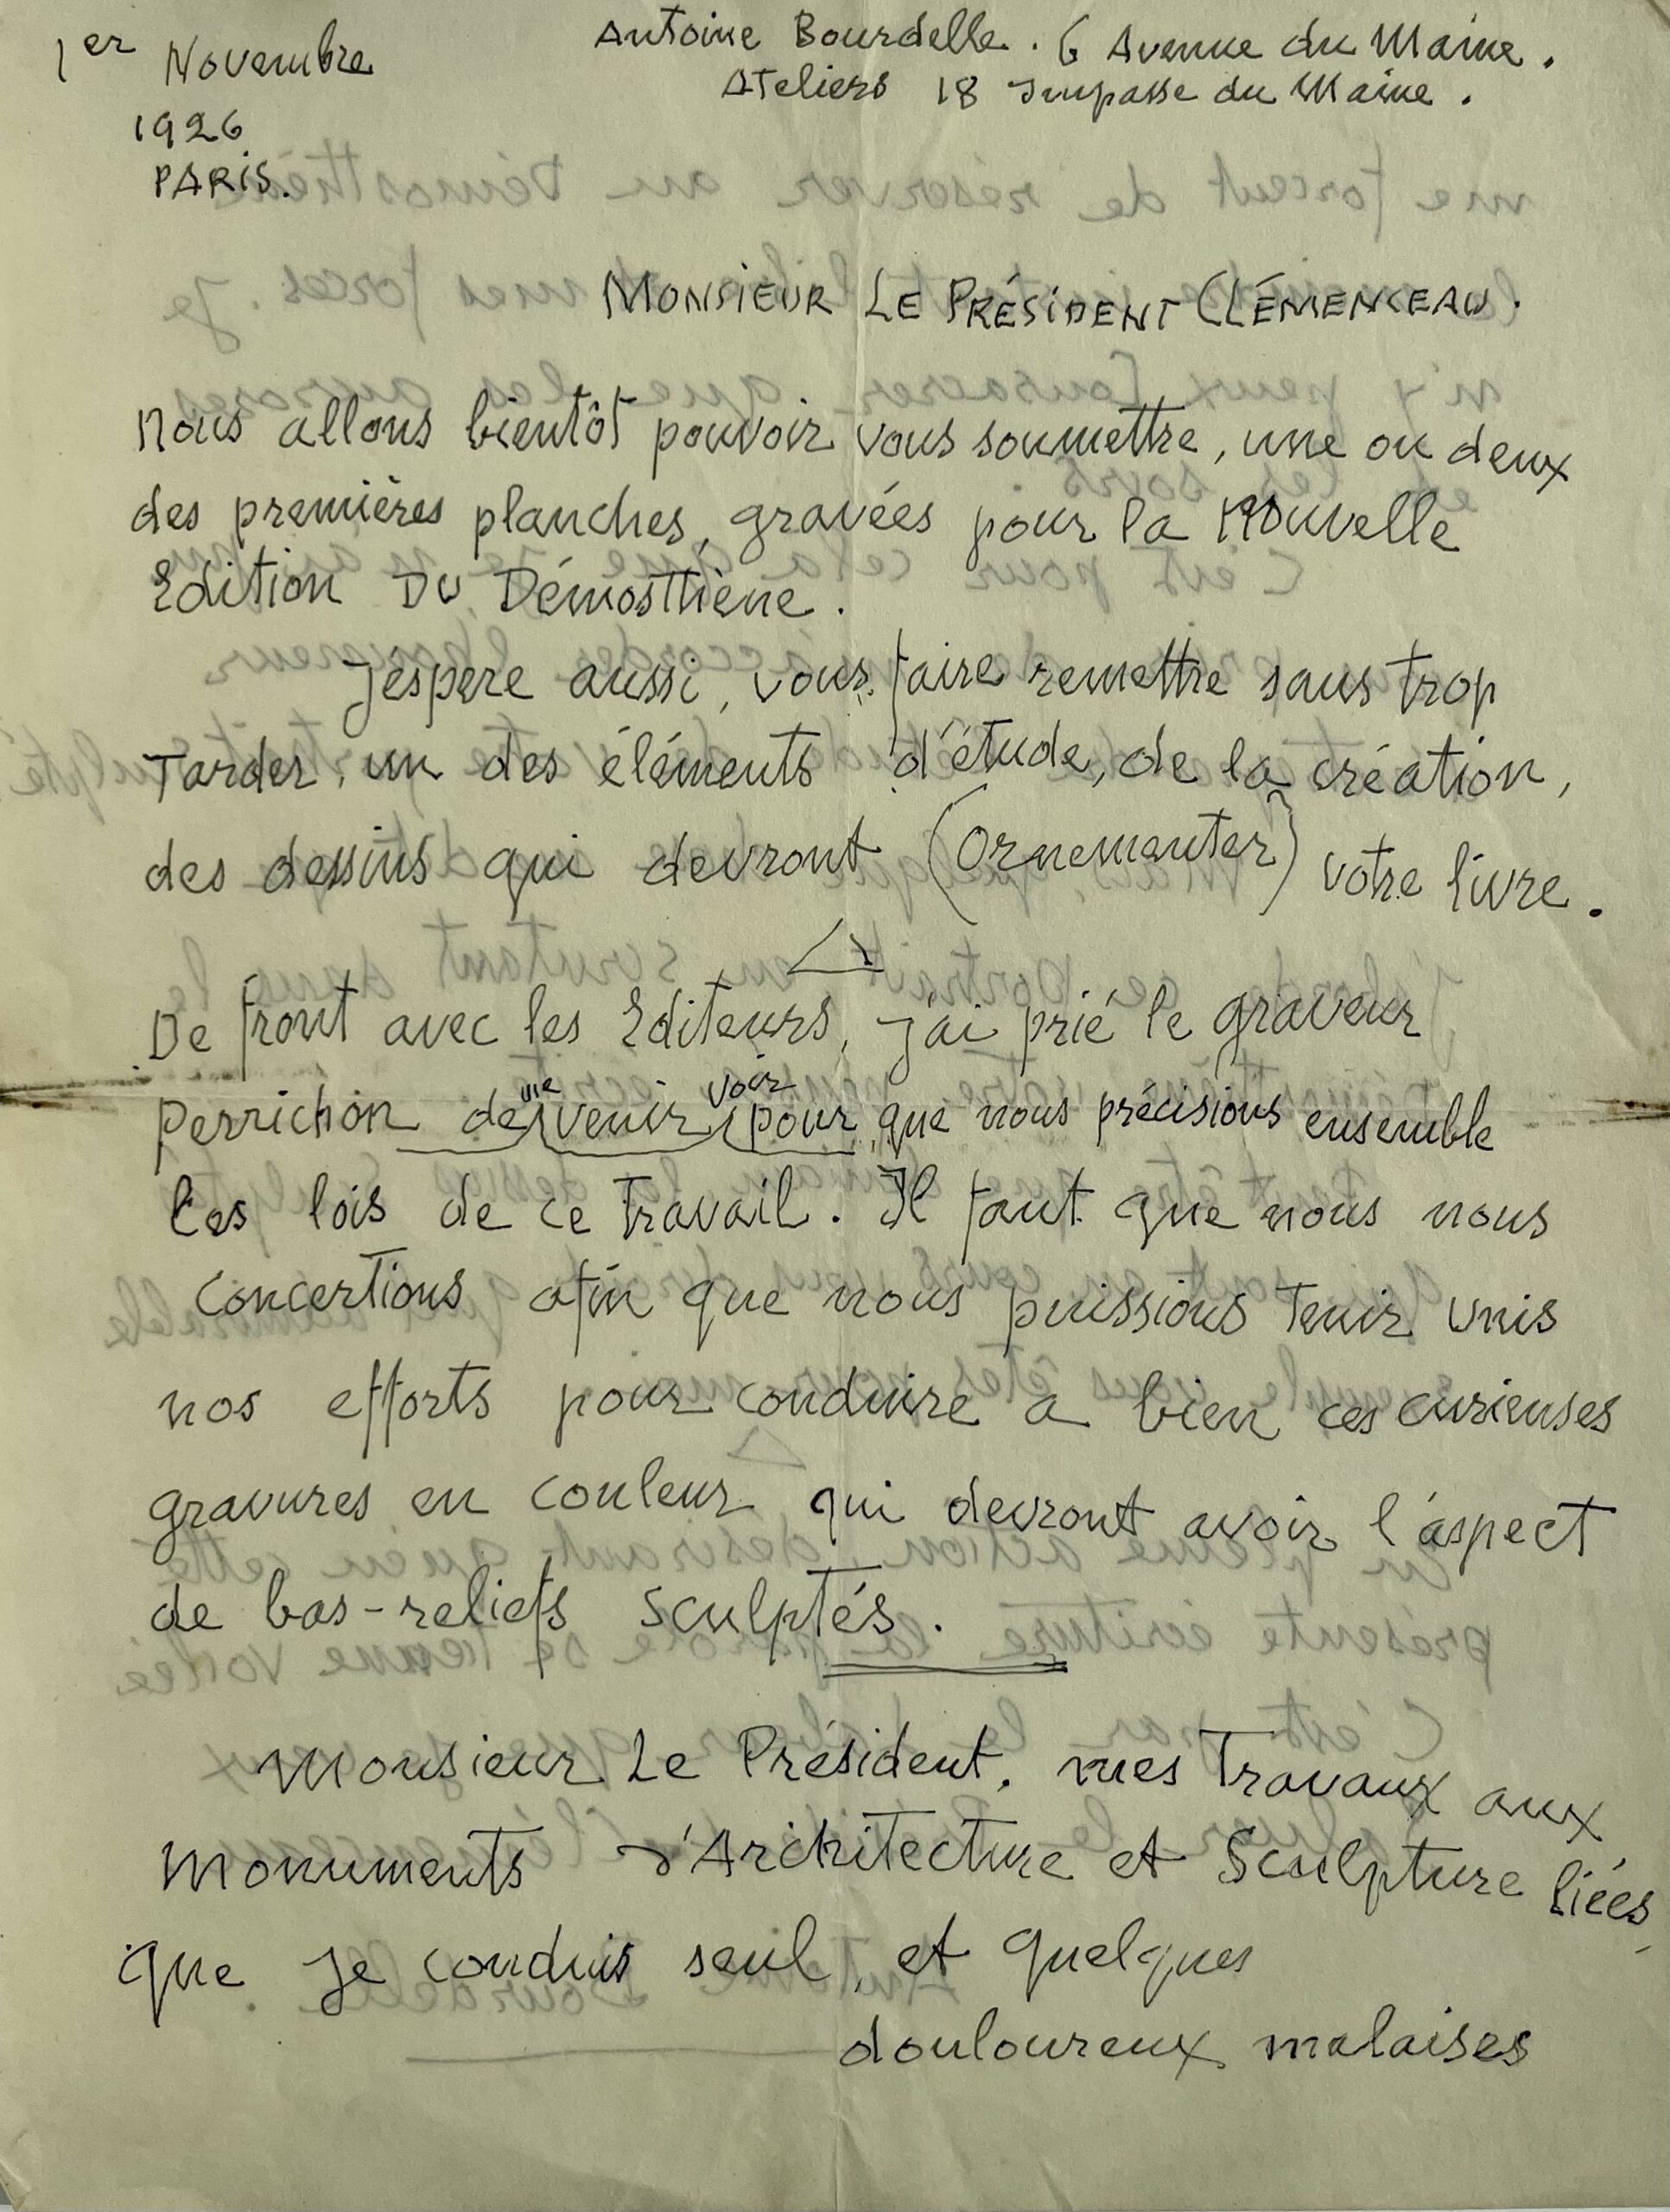 1er Novembre
1926
PARIS.
Antoine Bourdelle. 6 Avenue du Maine.
Ateliers 18 Impasse du Maine.
MONSIEUR LE PRÉSIDENT CLÉMENCEAU.
Nous allons bientôt pouvoir vous soumettre, une ou deux
des premières planches, gravées pour la Nouvelle
Edition DU Démosthène.
J'éspere aussi, vous faire remettre sans trop
Tarder, un des éléments d'étude, de la création,
des dessins qui devront (Ornementer) votre livre.
De front avec les Editeurs, j'ai prié le graveur
Perrichon de me venir voir pour que nous précisions ensemble
les lois de ce Travail. Il faut que nous nous
Concertions afin que nous puissions Tenir unis
nos efforts pour conduire a bien ces curieuses
gravures en couleur qui devront avoir l'aspect
de bas-reliefs sculptés.
Monsieur Le Président, mes Travaux aux
Monuments d'Architecture et Sculpture liées
que je conduis seul, et quelques
douloureux malaises